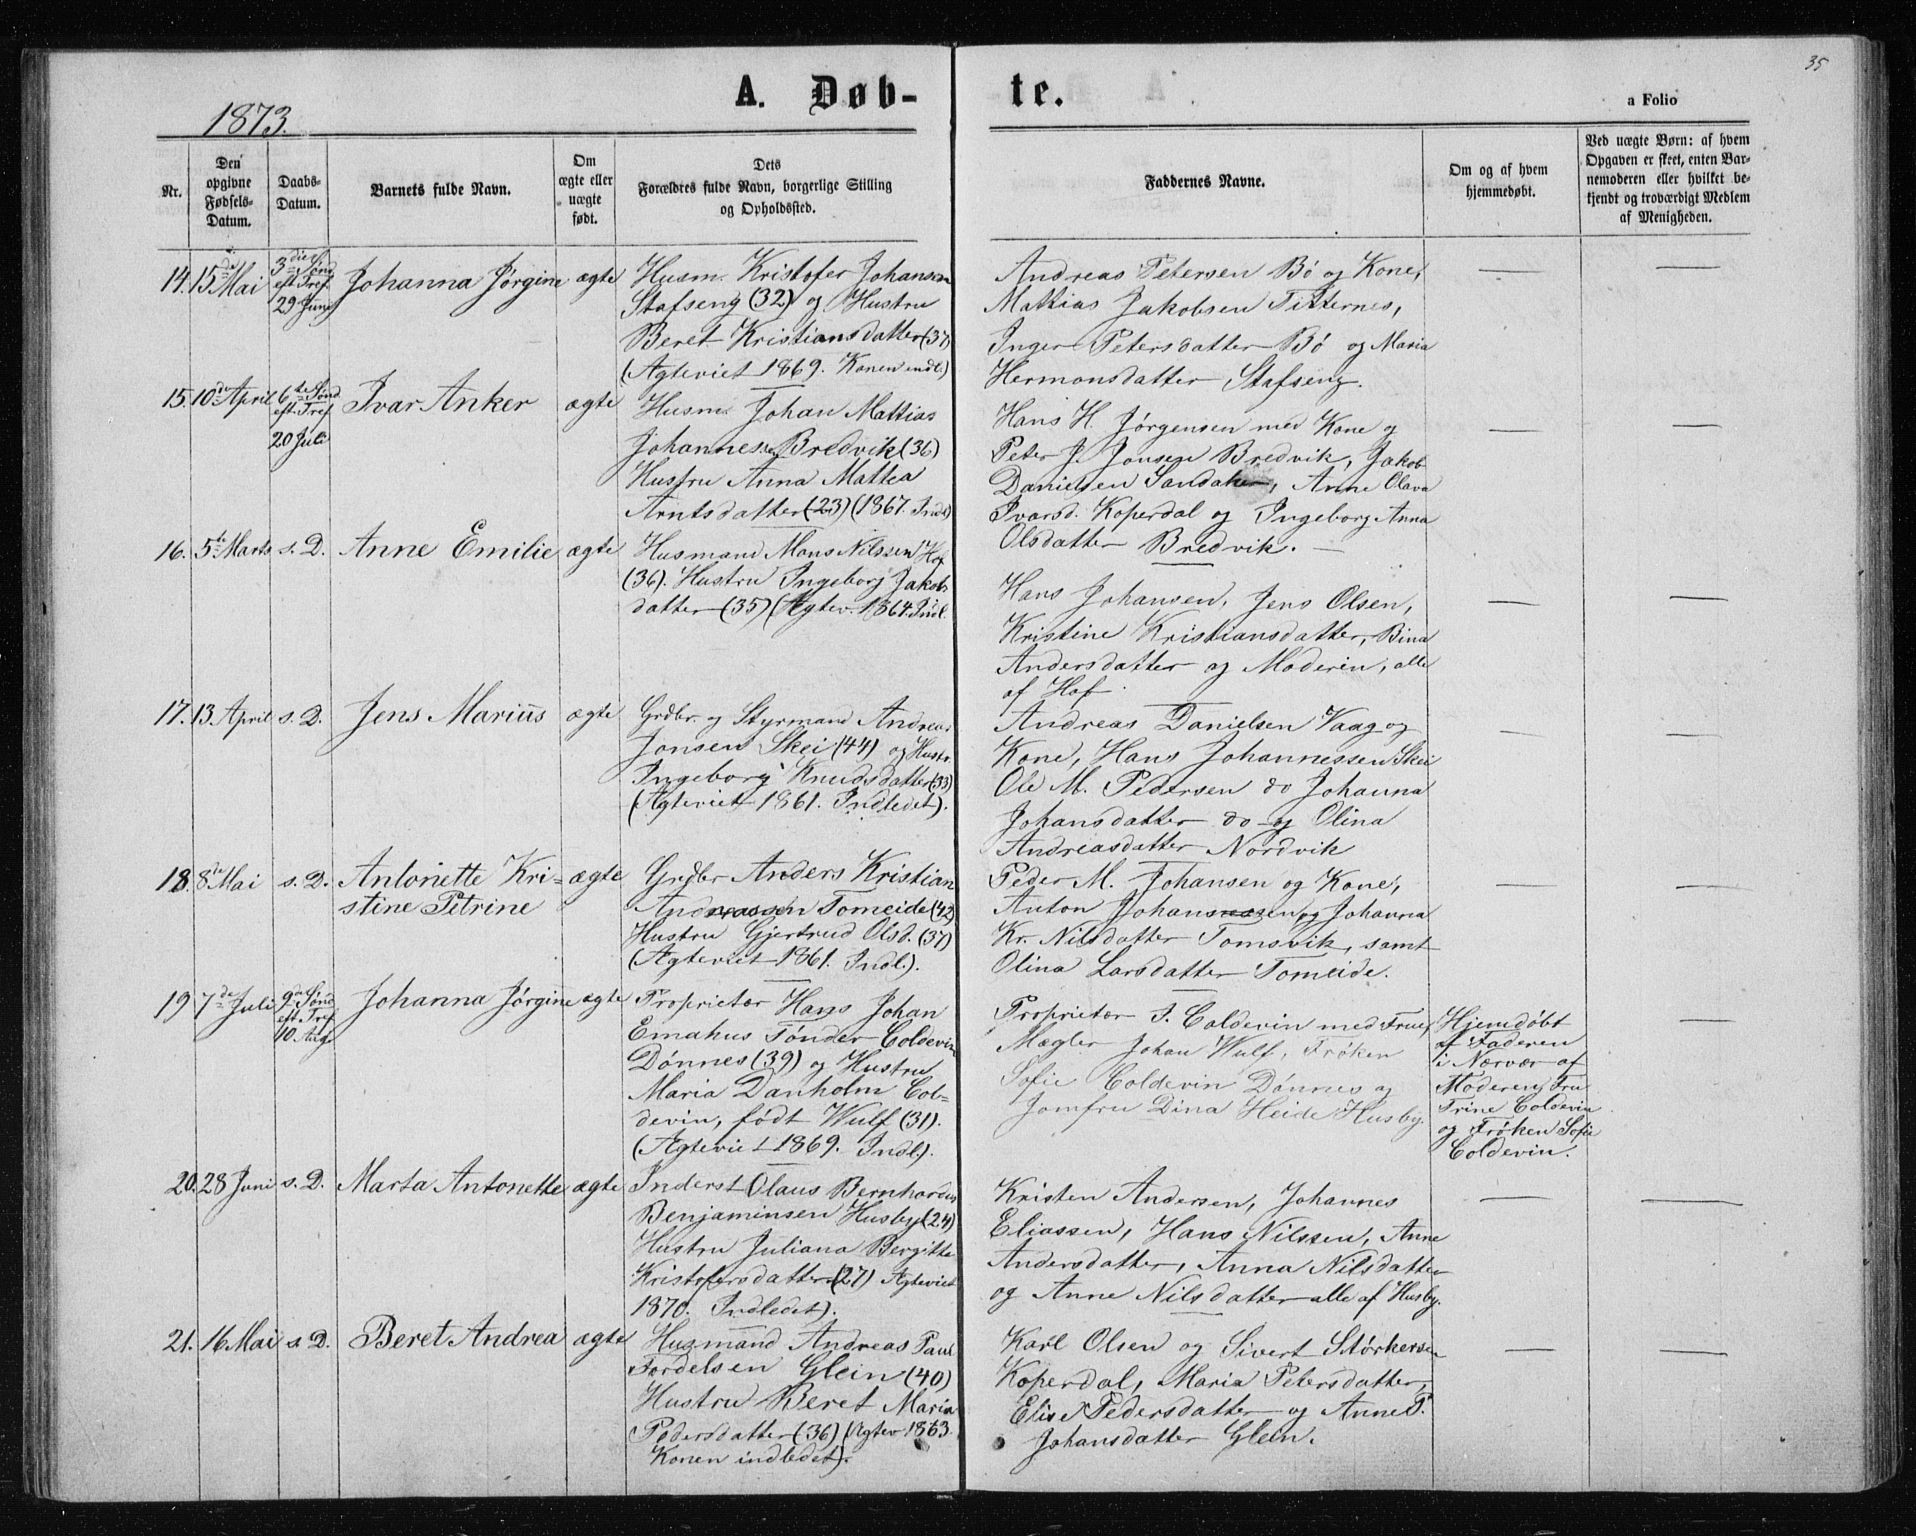 35
A. Døb-
te.
a Folio
1873.
Nr.
Den
opgivne
Fødsels-
Datum.
Daabs-
Datum.
Barnets fulde Navn.
Om
ægte eller
uægte
født.
Dets
Forældres fulde Navn, borgerlige Stilling
og Opholdssted.
Faddernes Navne.
Om og af hvem
hjemmedøbt.
Ved uægte Børn: af hvem
Opgaven er skeet, enten Bar-
nemoderen eller hvilket be-
kjendt og troværdigt Medlem
af Menigheden.
14. 15de Mai
3die Sønd
eft Tref
29 Juni
Johanna Jørgine
ægte
Husm. Kristofer Johansen
Stafseng (32) og Hustru
Beret Kristiansdatter (37)
(Ægteviet 1869. Konen indl.)
Andreas Petersen Bø og Kone,
Mattias Jakobsen Titternes,
Inger Petersdatter Bø og Maria
Hermansdatter Stafseng.
15. 10de April
6te Sønd
eft Tref
20 Juli
Ivar Anker
ægte
Husm. Johan Mattias
Johannessen Bredvik (36)
Hustru Anna Mattea
Arntsdatter (23) (1867. Indl)
Hans H. Jørgensen med Kone og
Peter J. Jonsen Bredvik, Jakob
Danielsen Sandaker, Anne Olava
Ivarsd. Koperdal og Ingeborg Anna
Olsdatter Bredvik. —
16. 5te Marts s. D. Anne Emilie ægte
Husmand Mons Nilssen Hof
(36). Hustru Ingeborg Jakobs
datter (35) (Ægtev. 1864. Indl.
Hans Johansen, Jens Olsen,
Kristine Kristiansdatter, Bina
Andersdatter og Moderen, alle
af Hof.
17. 13 April s. D. Jens Marius ægte
Grdbr. og Styrmand Andreas
Jonsen Skei (44) og Hustr.
Ingeborg Knudsdatter (33)
(Ægteviet 1861. Indledet).
Andreas Danielsen Vaag og
Kone, Hans Johannessen Skei
Ole M. Pedersen do Johanna
Johansdatter do og Olina
Andreasdatter Nordvik
18. 8de Mai s. D. Antonette Kri-
stine Petrine
ægte
Grdbr Anders Kristian
Andreassen Tomeide (42)
Hustru Gjertrud Olsd. (37)
(Ægteviet 1861. Indl.).
Peder M. Johansen og Kone,
Anton Johansen og Johanna
Kr. Nilsdatter Tomsvik, samt
Olina Larsdatter Tomeide.
19 7de Juli
9de Sønd
eft Tref
10 Aug
Johanna Jørgine ægte
Proprietær Hans Johan
Emahus Tønder Coldevin
Dønnes (39) og Hustru
Maria Danholm Col-
devin, født Wulf (31).
(Ægteviet 1869. Indl).
Proprietær I. Coldevin med Frue,
Mægler Johan Wulf, Frøken
Sofie Coldevin Dønnes og
Jomfru Dina Heide Husby.
Hjemdøbt
af Faderen
i Nærvær af
Moderen, Fru
Trine Coldevin
og Frøken Sofie
Coldevin.
20. 28 Juni s. D. Marta Antonette ægte
Inderst Olaus Bernhardus
Benjaminsen Husby (24)
Hustru Juliana Bergitte
Kristofersdatter (27) Ægteviet
1870. Indledet).
Kristen Andersen, Johannes
Eliassen, Hans Nilssen, Anne
Andersdatter, Anna Nilsdatter
og Anne Nilsdatter alle af Husby.
21. 16 Mai s. D. Beret Andrea ægte
Husmand Andreas Paul
Tordelsen Glein (40)
Hustru Beret Maria
Pedersdatter (36) (Ægtev. 1863.
Konen indledet).
Karl Olsen og Sivert Størkersen
Koperdal, Maria Petersdatter,
Elise Pedersdatter og Anne P.
Johansdatter Glein.